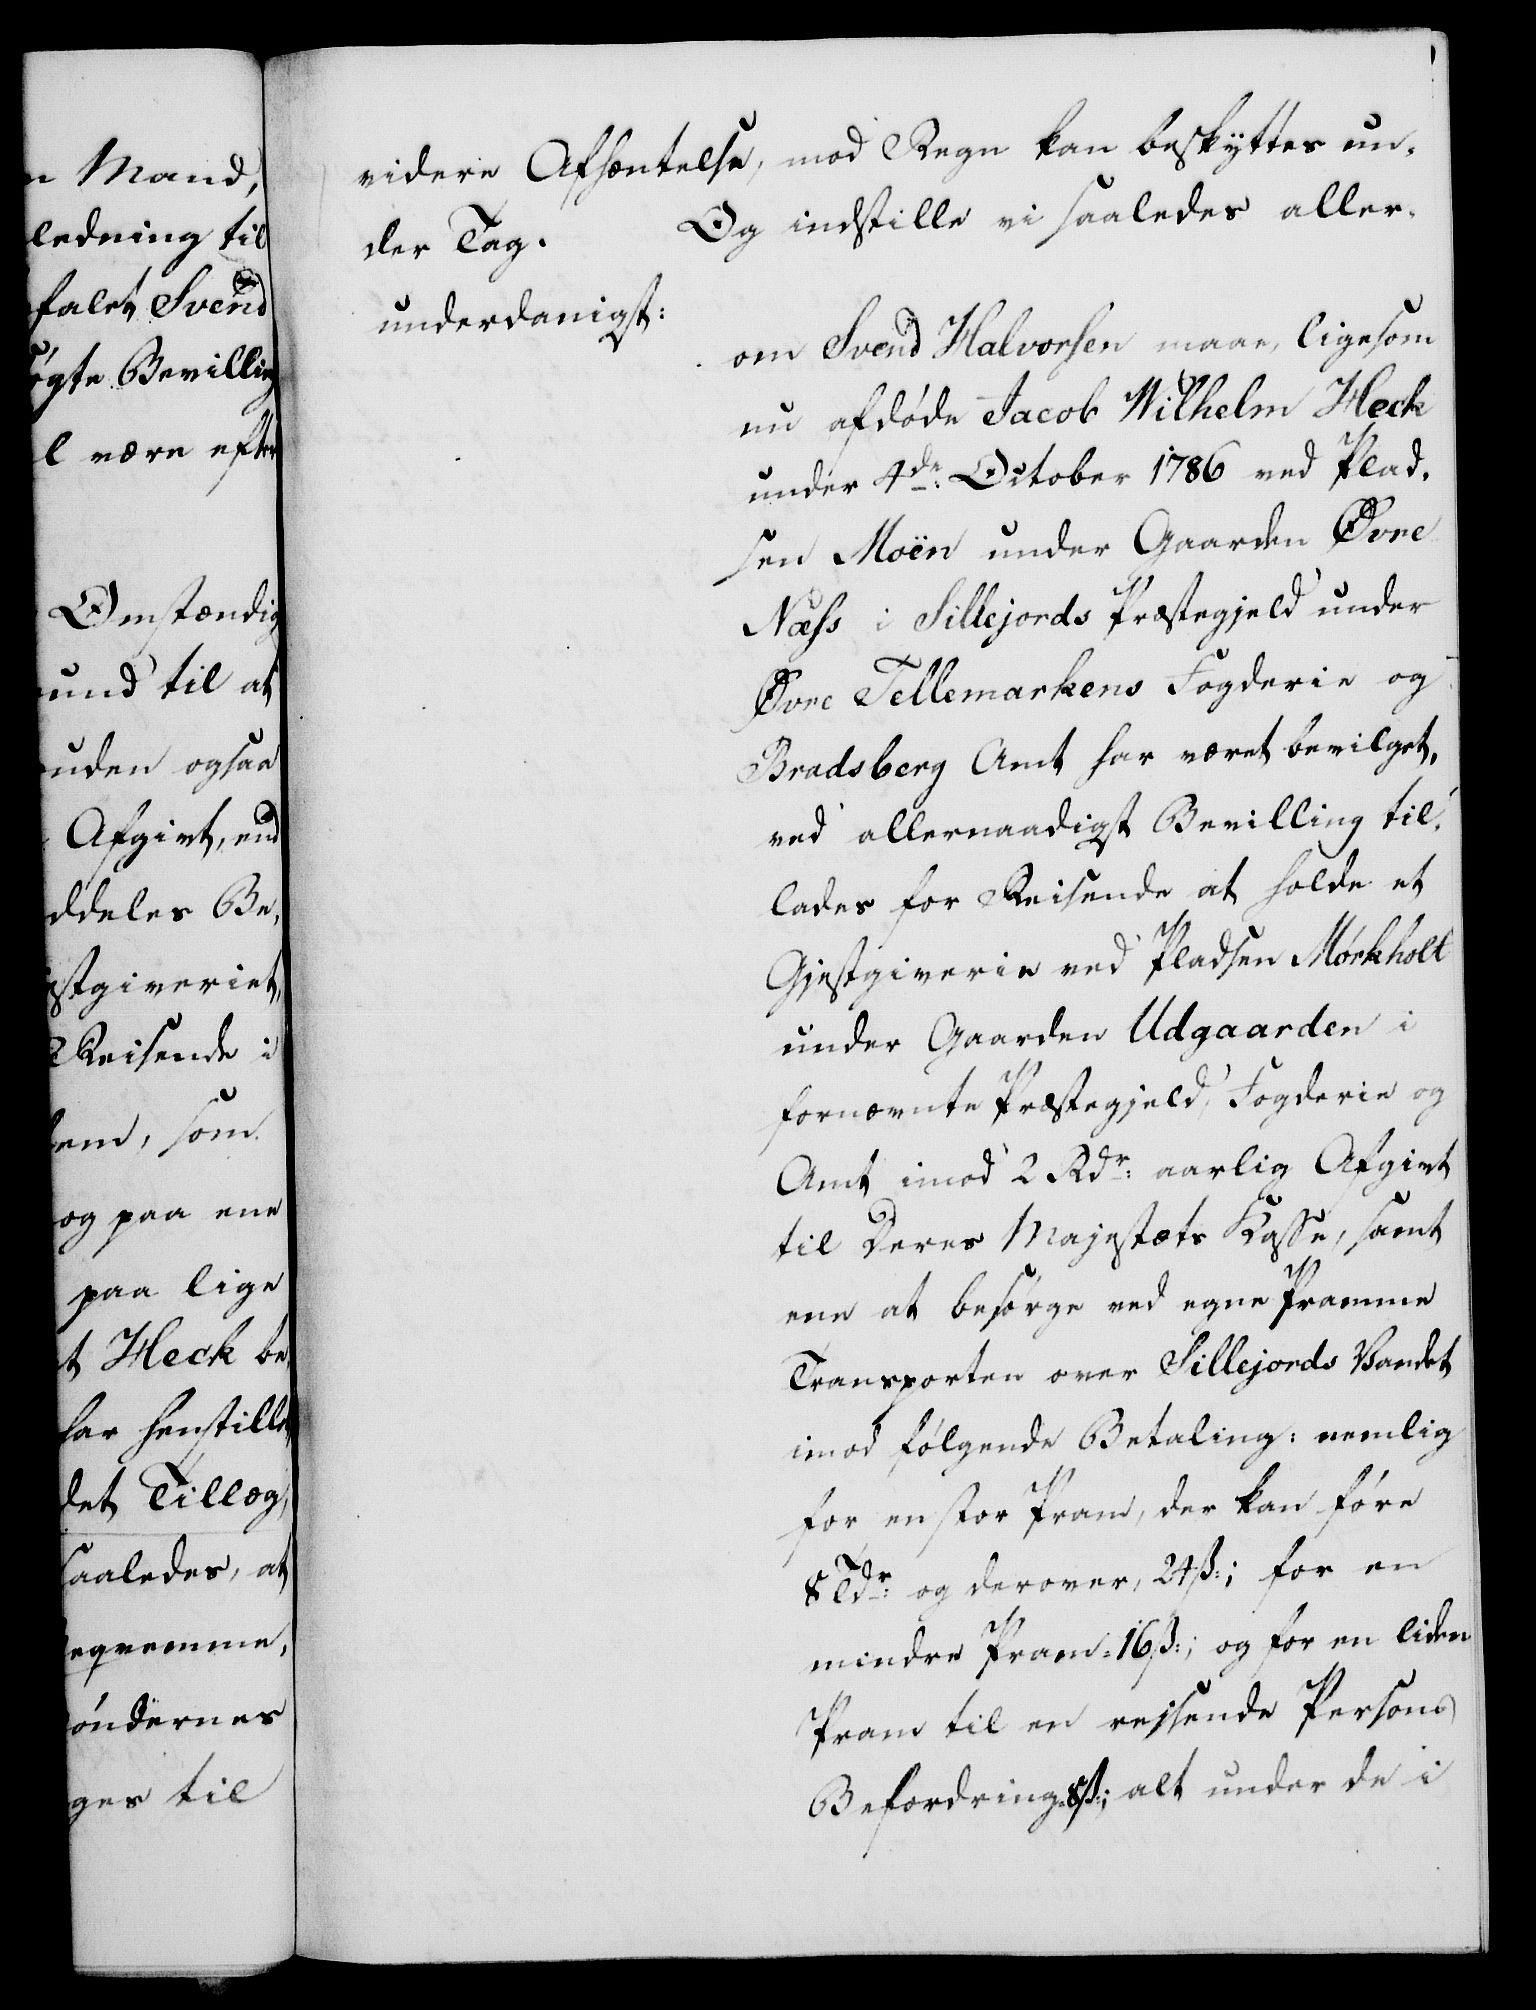 n Mand,
ledning til
falet Svend
øgte Bevilling
l være efter
Omstændig
und til at
uden ogsaa
Afgivt, end
ddeles Be-
stgiveriet,
Reisende i
em, som
og paa ene
paa lige
t Heck be
har henstillet,
det Tillæg,
saaledes, at
eqvemme,
öndernes
ges til
videre Afhæntelse, mod Regn kan beskyttes un-
der Tag. Og indstille vi saaledes aller-
underdanigst:
om Svend Halvorsen maae, ligesom
nu afdøde Jacob Wilhelm Heck
under 4de October 1786 ved Plad-
sen Moën under Gaarden Øvre
Næss i Sillejords Præstegjeld under
Øvre Tellemarkens Fogderie og
Bradsberg Amt har været bevilget,
ved allernaadigst Bevilling til-
lades for Reisende at holde et
Gjestgiverie ved Pladsen Mørkholt
under Gaarden Udgaarden i
fornævnte Præstegjeld, Fogderie og
Amt imod 2 Rdr: aarlig Afgivt
til Deres Majestæts Kasse, samt
ene at besørge ved egne Pramme
Transporten over Sillejords Vandet
imod følgende Betaling: nemlig
for en stor Pram, der kan føre
8 Tdr: og derover, 24 ß:; for en
mindre Pram 16 ß:; og for en liden
Pram til en rejsende Persons
Befordring 8 ß:; alt under de i